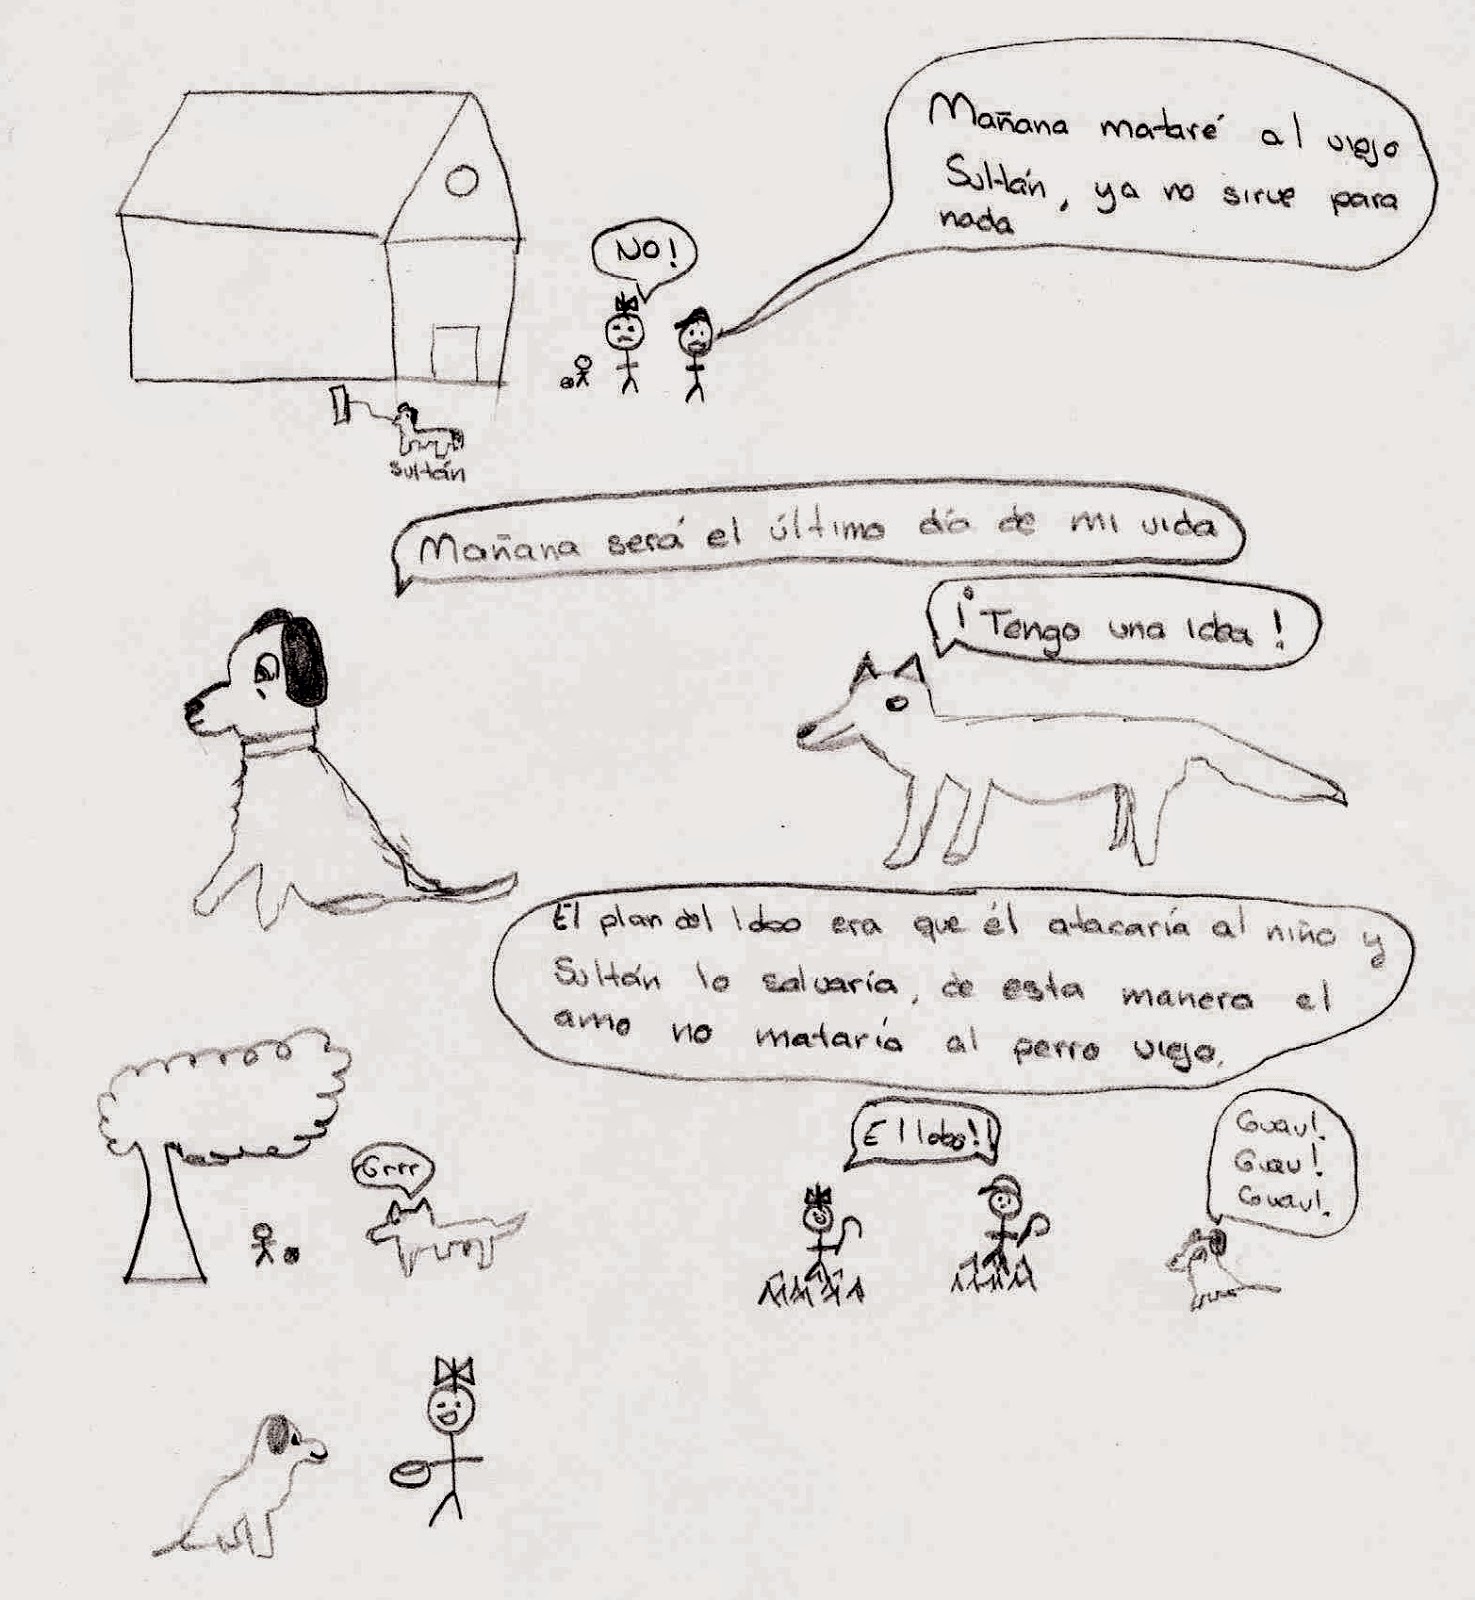 Mañana mataré al viejo
Sultán, ya no sirve para
nada
NO!
Sultán
Mañana será el último día de mi vida
¡Tengo una idea!
El plan del lobo era que él atacaría al niño y
Sultán lo salvaría, de esta manera el
amo no mataría al perro viejo.
Grrr
El lobo!!
Guau!
Guau!
Guau!